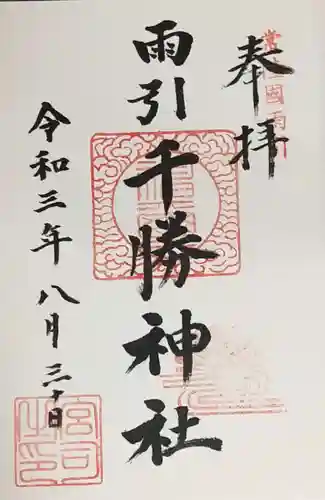 奉拝
雨引
千勝神社
令和三年八月三十日